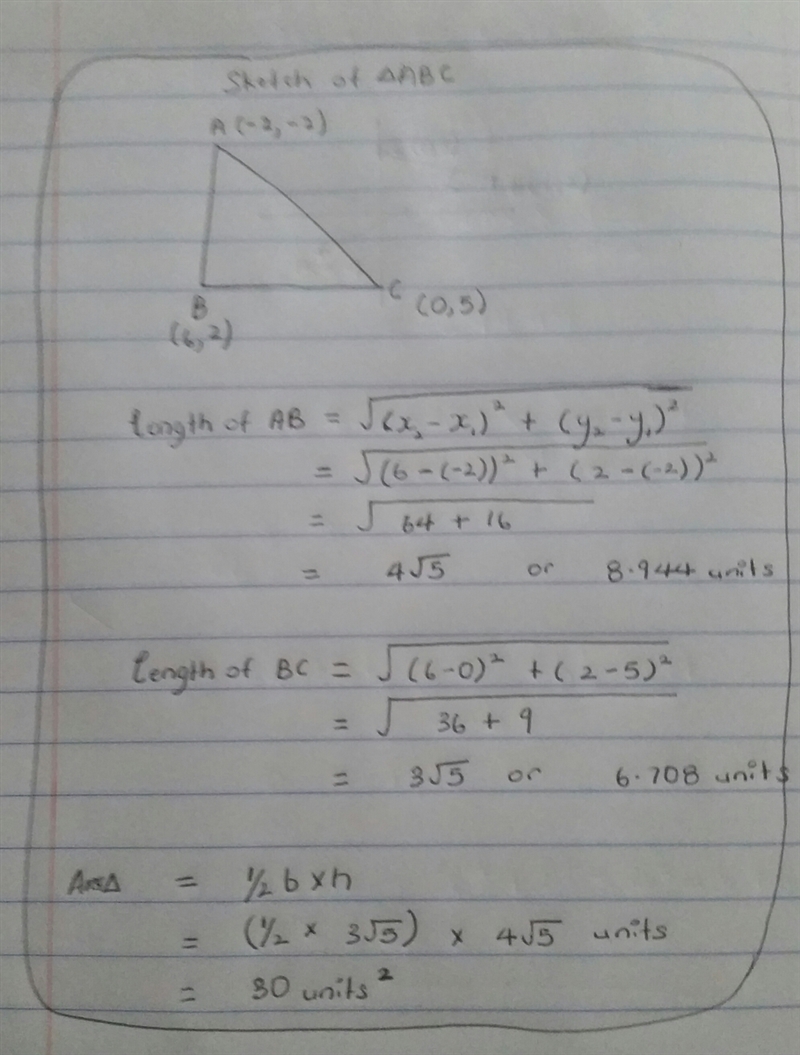 Sketch of ΔABC
A (-2, -2)
B
(6, 2)
C (0, 5)
Length of AB = √(x₂ - x₁)² + (y₂ - y₁)²
= √(6 - (-2))² + (2 - (-2))²
= √64 + 16
= 4√5 or 8.944 units
Length of BC = √(6-0)² + (2-5)²
= √36 + 9
= 3√5 or 6.708 units
AreaΔ = 1/2 b x h
= (1/2 x 3√5) x 4√5 units
= 30 units²